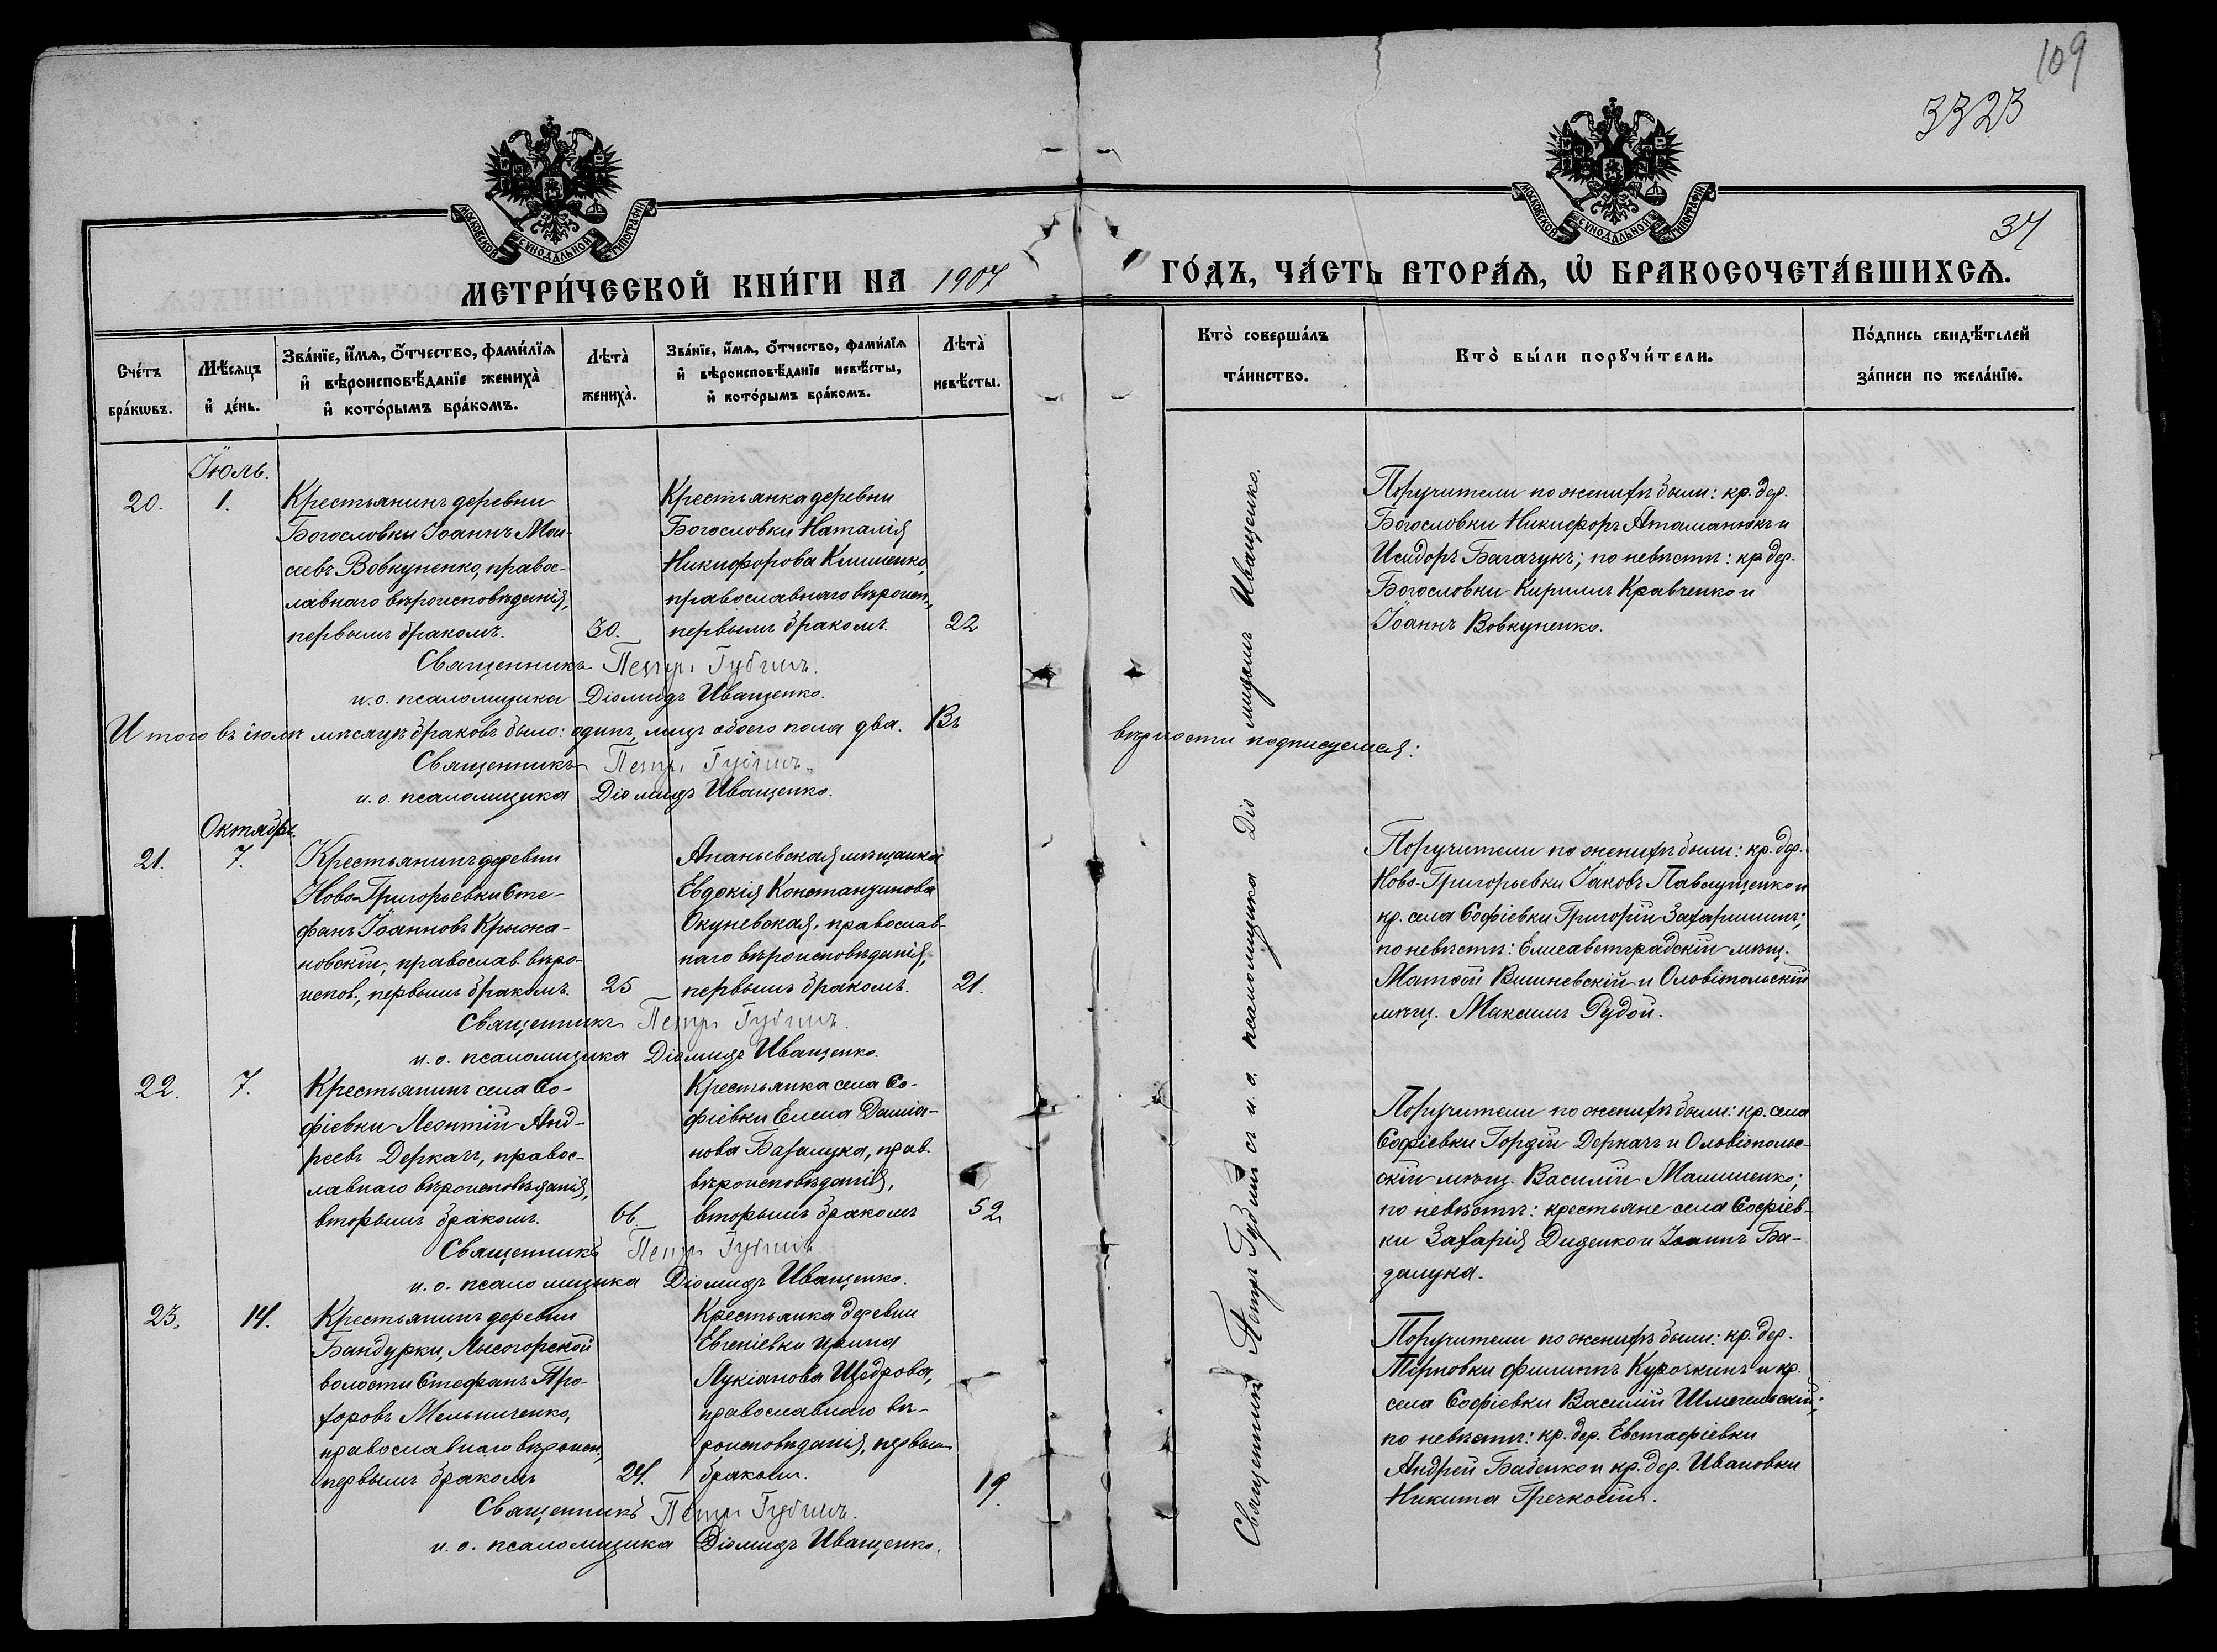 109
3323
МОСКОВСКОЙ СУНОДАЛЬНОЙ ТИПОГРАФІИ
МОСКОВСКОЙ СУНОДАЛЬНОЙ ТИПОГРАФІИ
34
МЕТРИ́ЧЕСКОЙ КНИ́ГИ НА 1907 ГО́ДЪ, ЧА́СТЬ ВТОРА́Ѧ, Ѽ БРАКОСОЧЕТА́ВШИХСѦ.
Сче́тъ бра́кѡвъ.
Мѣ́сяцъ и҆ де́нь.
Зва́нїе, и҆́мѧ, ѻ҆́тчество, фами́лїѧ
и҆ вѣроисповѣ́данїе жениха̀
и҆ кото́рымъ бра́комъ.
Лѣта̀ жениха̀.
Зва́нїе, и҆́мѧ, ѻ҆́тчество, фами́лїѧ
и҆ вѣроисповѣ́данїе невѣ́сты,
и҆ кото́рымъ бра́комъ.
Лѣта̀ невѣ́сты.
Кто̀ соверша́лъ та́инство.
Кто̀ бы́ли порꙋчи́тели.
По́дпись свидѣ́телей
за́писи по жела́нїю.
Іюль.
20.
1.
Крестьянинъ деревни
Богословки Іоаннъ Мои-
сеевъ Вовкупенко, правос-
лавнаго вѣроисповѣданія,
первымъ бракомъ.
30.
Крестьянка деревни
Богословки Наталія
Никифорова Клименко,
православнаго вѣроисп.,
первымъ бракомъ.
22
Поручители по женихѣ были: кр. дер.
Богословки Никифоръ Атаманюкъ и
Исидоръ Багачукъ; по невѣстѣ: кр. дер.
Богословки Кириллъ Кравченко и
Іоаннъ Вовкупенко.
Священникъ Петръ Губчин.
и. о. псаломщика Діомидъ Иващенко.
Итого въ іюлѣ мѣсяцѣ браковъ было: одинъ, лицъ обоего пола два. Въ
вѣрности подписуемся:
Священникъ Петръ Губчин.
и. о. псаломщика Діомидъ Иващенко.
Октябрь.
21.
7.
Крестьянинъ деревни
Ново-Григорьевки Сте-
фанъ Іоанновъ Крыжа-
новскій, православ. вѣро-
испов., первымъ бракомъ.
25
Ананьевская мѣщанка
Евдокія Константинова
Окуневская, православ-
наго вѣроисповѣданія,
первымъ бракомъ.
21.
Поручители по женихѣ были: кр. дер.
Ново-Григорьевки Іаковъ Павлущенко и
кр. села Софіевки Григорій Захаришинъ;
по невѣстѣ: Елисаветградскій мѣщ.
Матѳей Вишневскій и Ольвіопольскій
мѣщ. Максимъ Рудой.
Священникъ Петръ Губчин.
и. о. псаломщика Діомидъ Иващенко.
22.
7.
Крестьянинъ села Со-
фіевки Леонтій Анд-
реевъ Деркачъ, правос-
лавнаго вѣроисповѣданія,
вторымъ бракомъ.
66
Крестьянка села Со-
фіевки Елена Даміа-
нова Базалука, прав.
вѣроисповѣданія,
вторымъ бракомъ
52
Поручители по женихѣ были: кр. села
Софіевки Гордій Деркачъ и Ольвіополь-
скій мѣщ. Василій Малишенко;
по невѣстѣ: крестьяне села Софіев-
ки Захарія Диденко и Іоаннъ Ба-
залука.
Священникъ Петръ Губчин
и. о. псаломщика Діомидъ Иващенко.
23.
14.
Крестьянинъ деревни
Бандурки, Лысогорской
волости Стефанъ Про-
хоровъ Мельниченко,
православнаго вѣроисп.,
первымъ бракомъ
24.
Крестьянка деревни
Евгеніевки Ирина
Лукіанова Щедрова,
православнаго вѣ-
роисповѣданія, первымъ
бракомъ.
19.
Поручители по женихѣ были: кр. дер.
Терновки Филиппъ Курочкинъ и кр.
села Софіевки Василій Шмегельскій;
по невѣстѣ: кр. дер. Евстафіевки
Андрей Бабенко и кр. дер. Ивановки
Никита Гречкосій.
Священникъ Петръ Губчин.
и. о. псаломщика Діомидъ Иващенко.
Священникъ Петръ Губчин съ и. о. псаломщика Діомидомъ Иващенко.